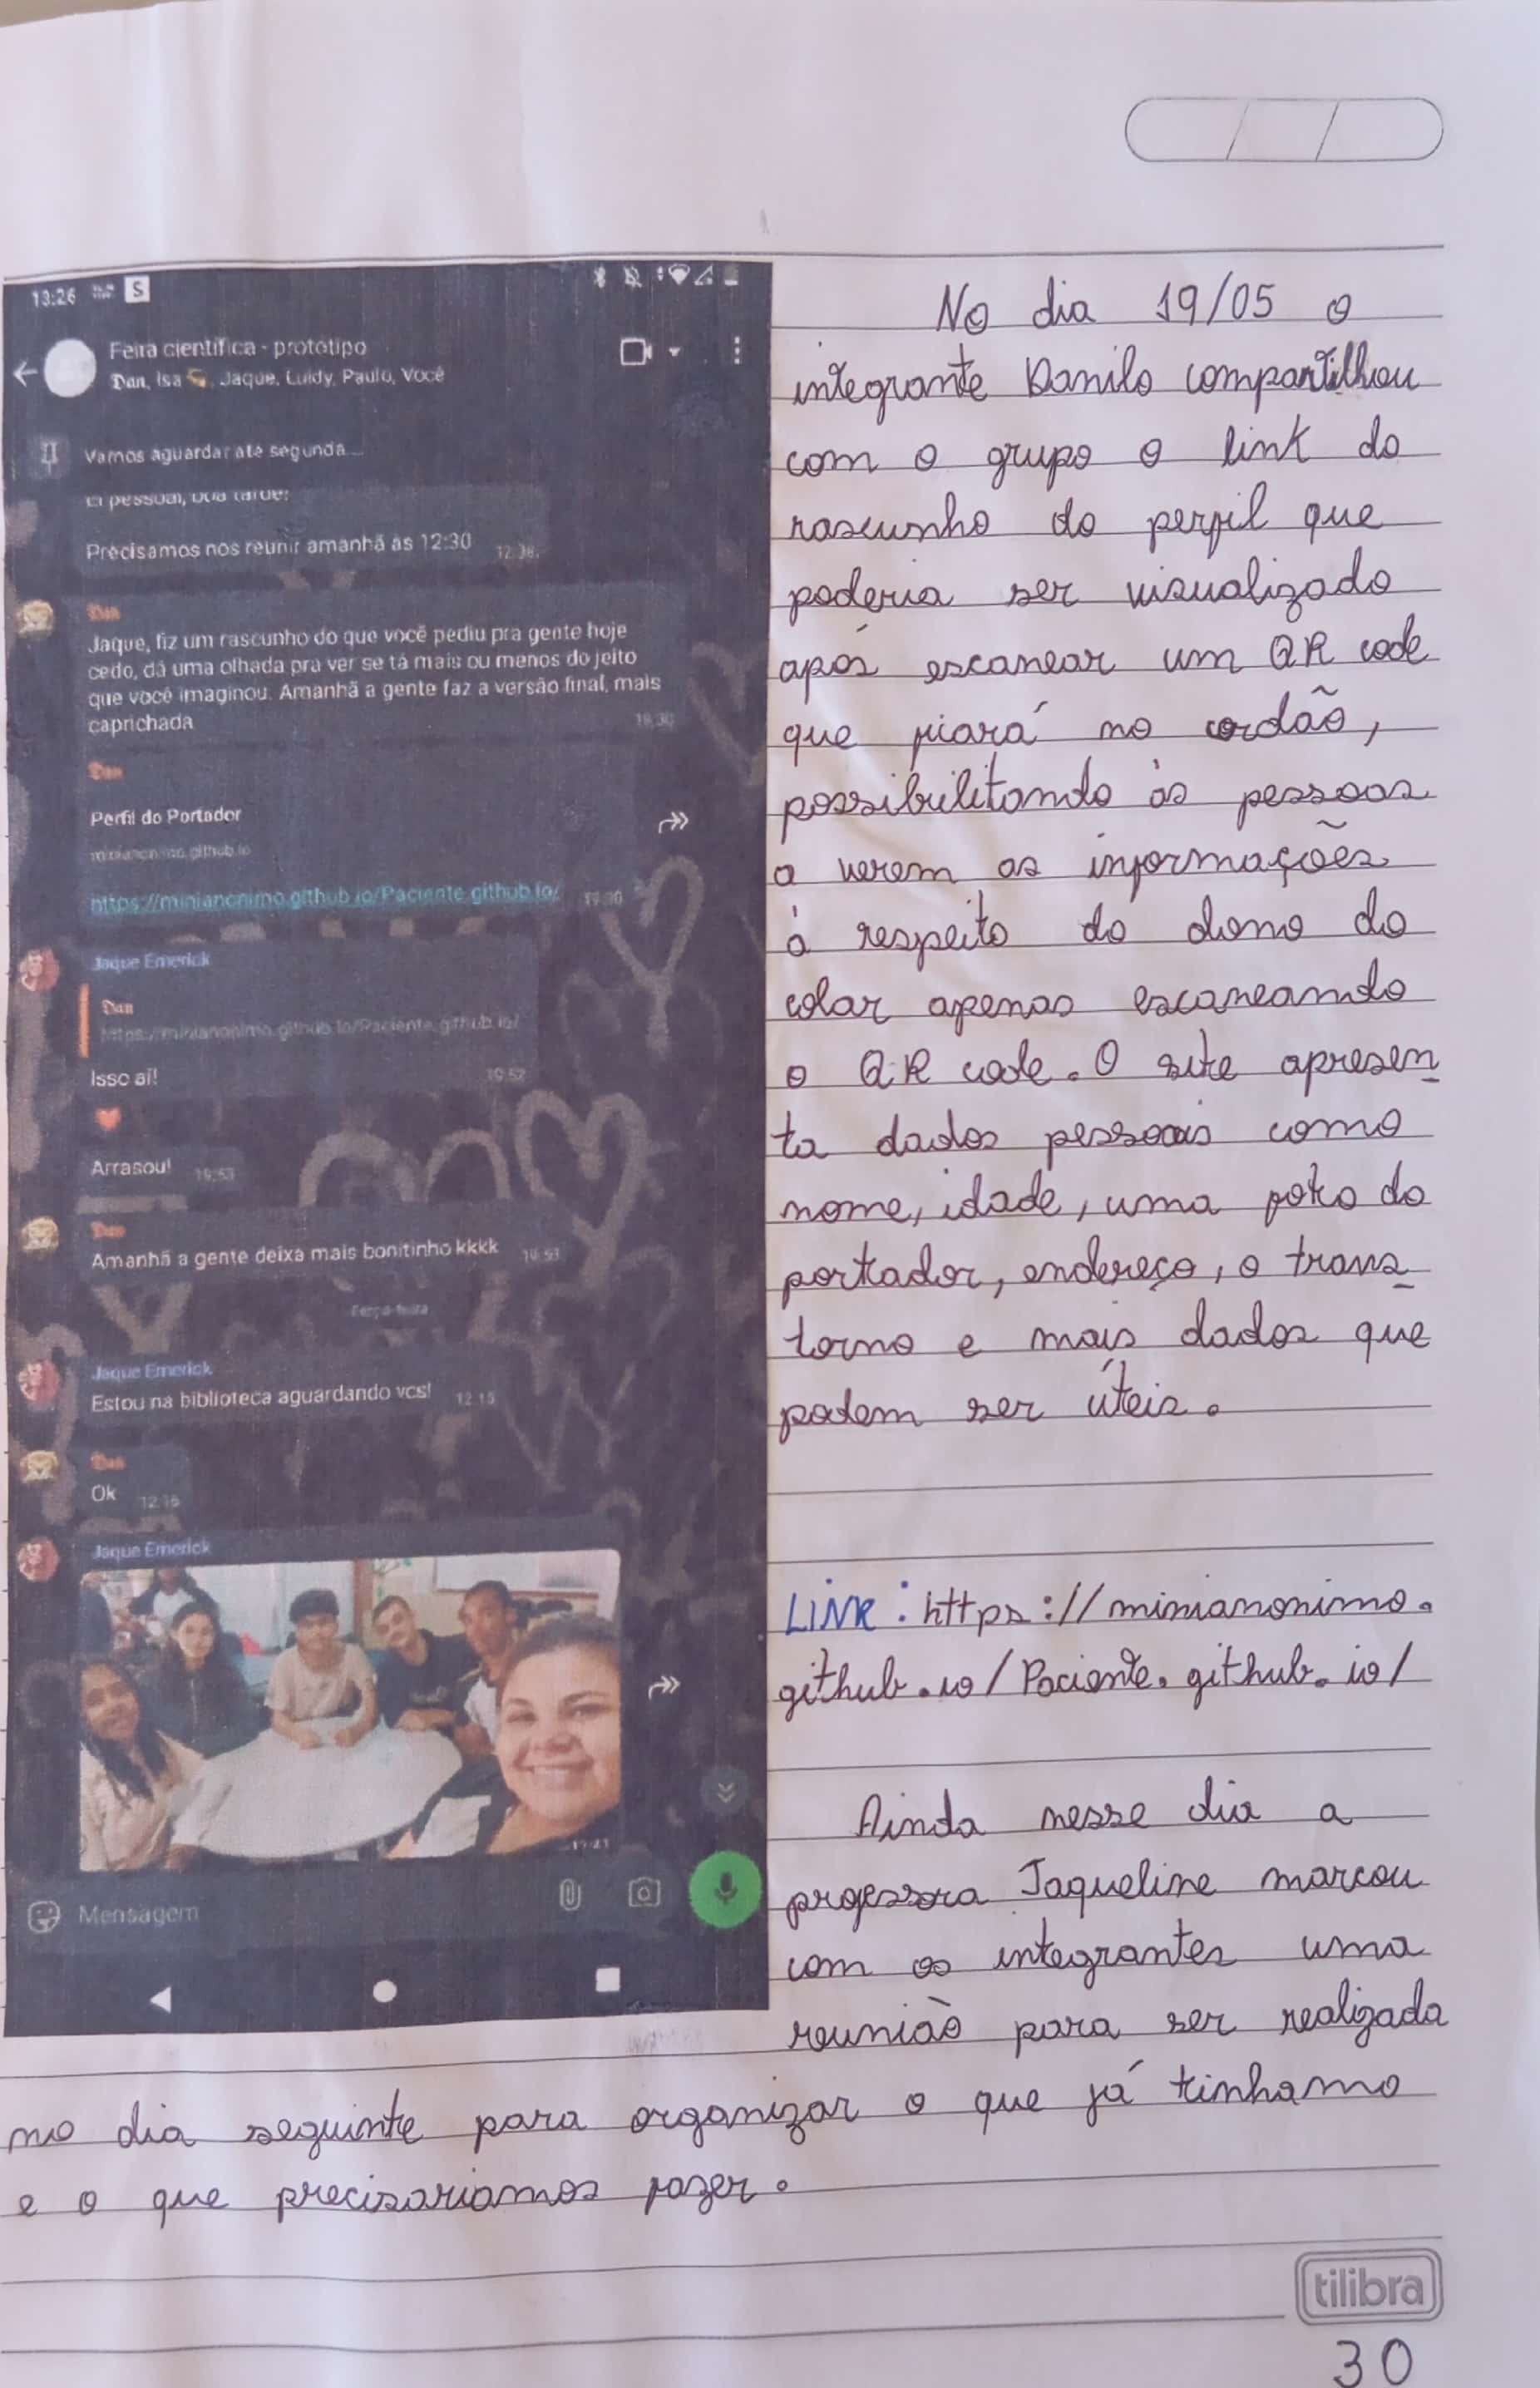 13:26 S
Feira científica - protótipo
Dan, Isa, Jaque, Luidy, Paulo, Você
Vamos aguardar até segunda...
Ei pessoal, boa tarde!
Precisamos nos reunir amanhã às 12:30
Dan
Jaque, fiz um rascunho do que você pediu pra gente hoje
cedo, dá uma olhada pra ver se tá mais ou menos do jeito
que você imaginou. Amanhã a gente faz a versão final, mais
caprichada
Dan
Perfil do Portador
minianonimo.github.io
https://minianonimo.github.io/Paciente.github.io/
Jaque Emerick
Dan
https://minianonimo.github.io/Paciente.github.io/
Isso aí! 19:52
Arrasou! 19:53
Dan
Amanhã a gente deixa mais bonitinho kkkk 19:53
Terça-feira
Jaque Emerick
Estou na biblioteca aguardando vcs! 12:15
Dan
Ok
Jaque Emerick
Mensagem
No dia 19/05 o
integrante Danilo compartilhou
com o grupo o link do
rascunho do perfil que
poderia ser visualizado
após escanear um QR code
que ficará no cordão,
possibilitando às pessoas
a verem as informações
à respeito do dono do
colar apenas escaneando
o QR code. O site apresen
ta dados pessoais como
nome, idade, uma foto do
portador, endereço, o trans
torno e mais dados que
podem ser úteis.
LINK: https://minianonimo.
github.io/Paciente.github.io/
Ainda nesse dia a
professora Jaqueline marcou
com os integrantes uma
reunião para ser realizada
no dia seguinte para organizar o que já tinhamo
e o que precisariamos fazer.
tilibra
30